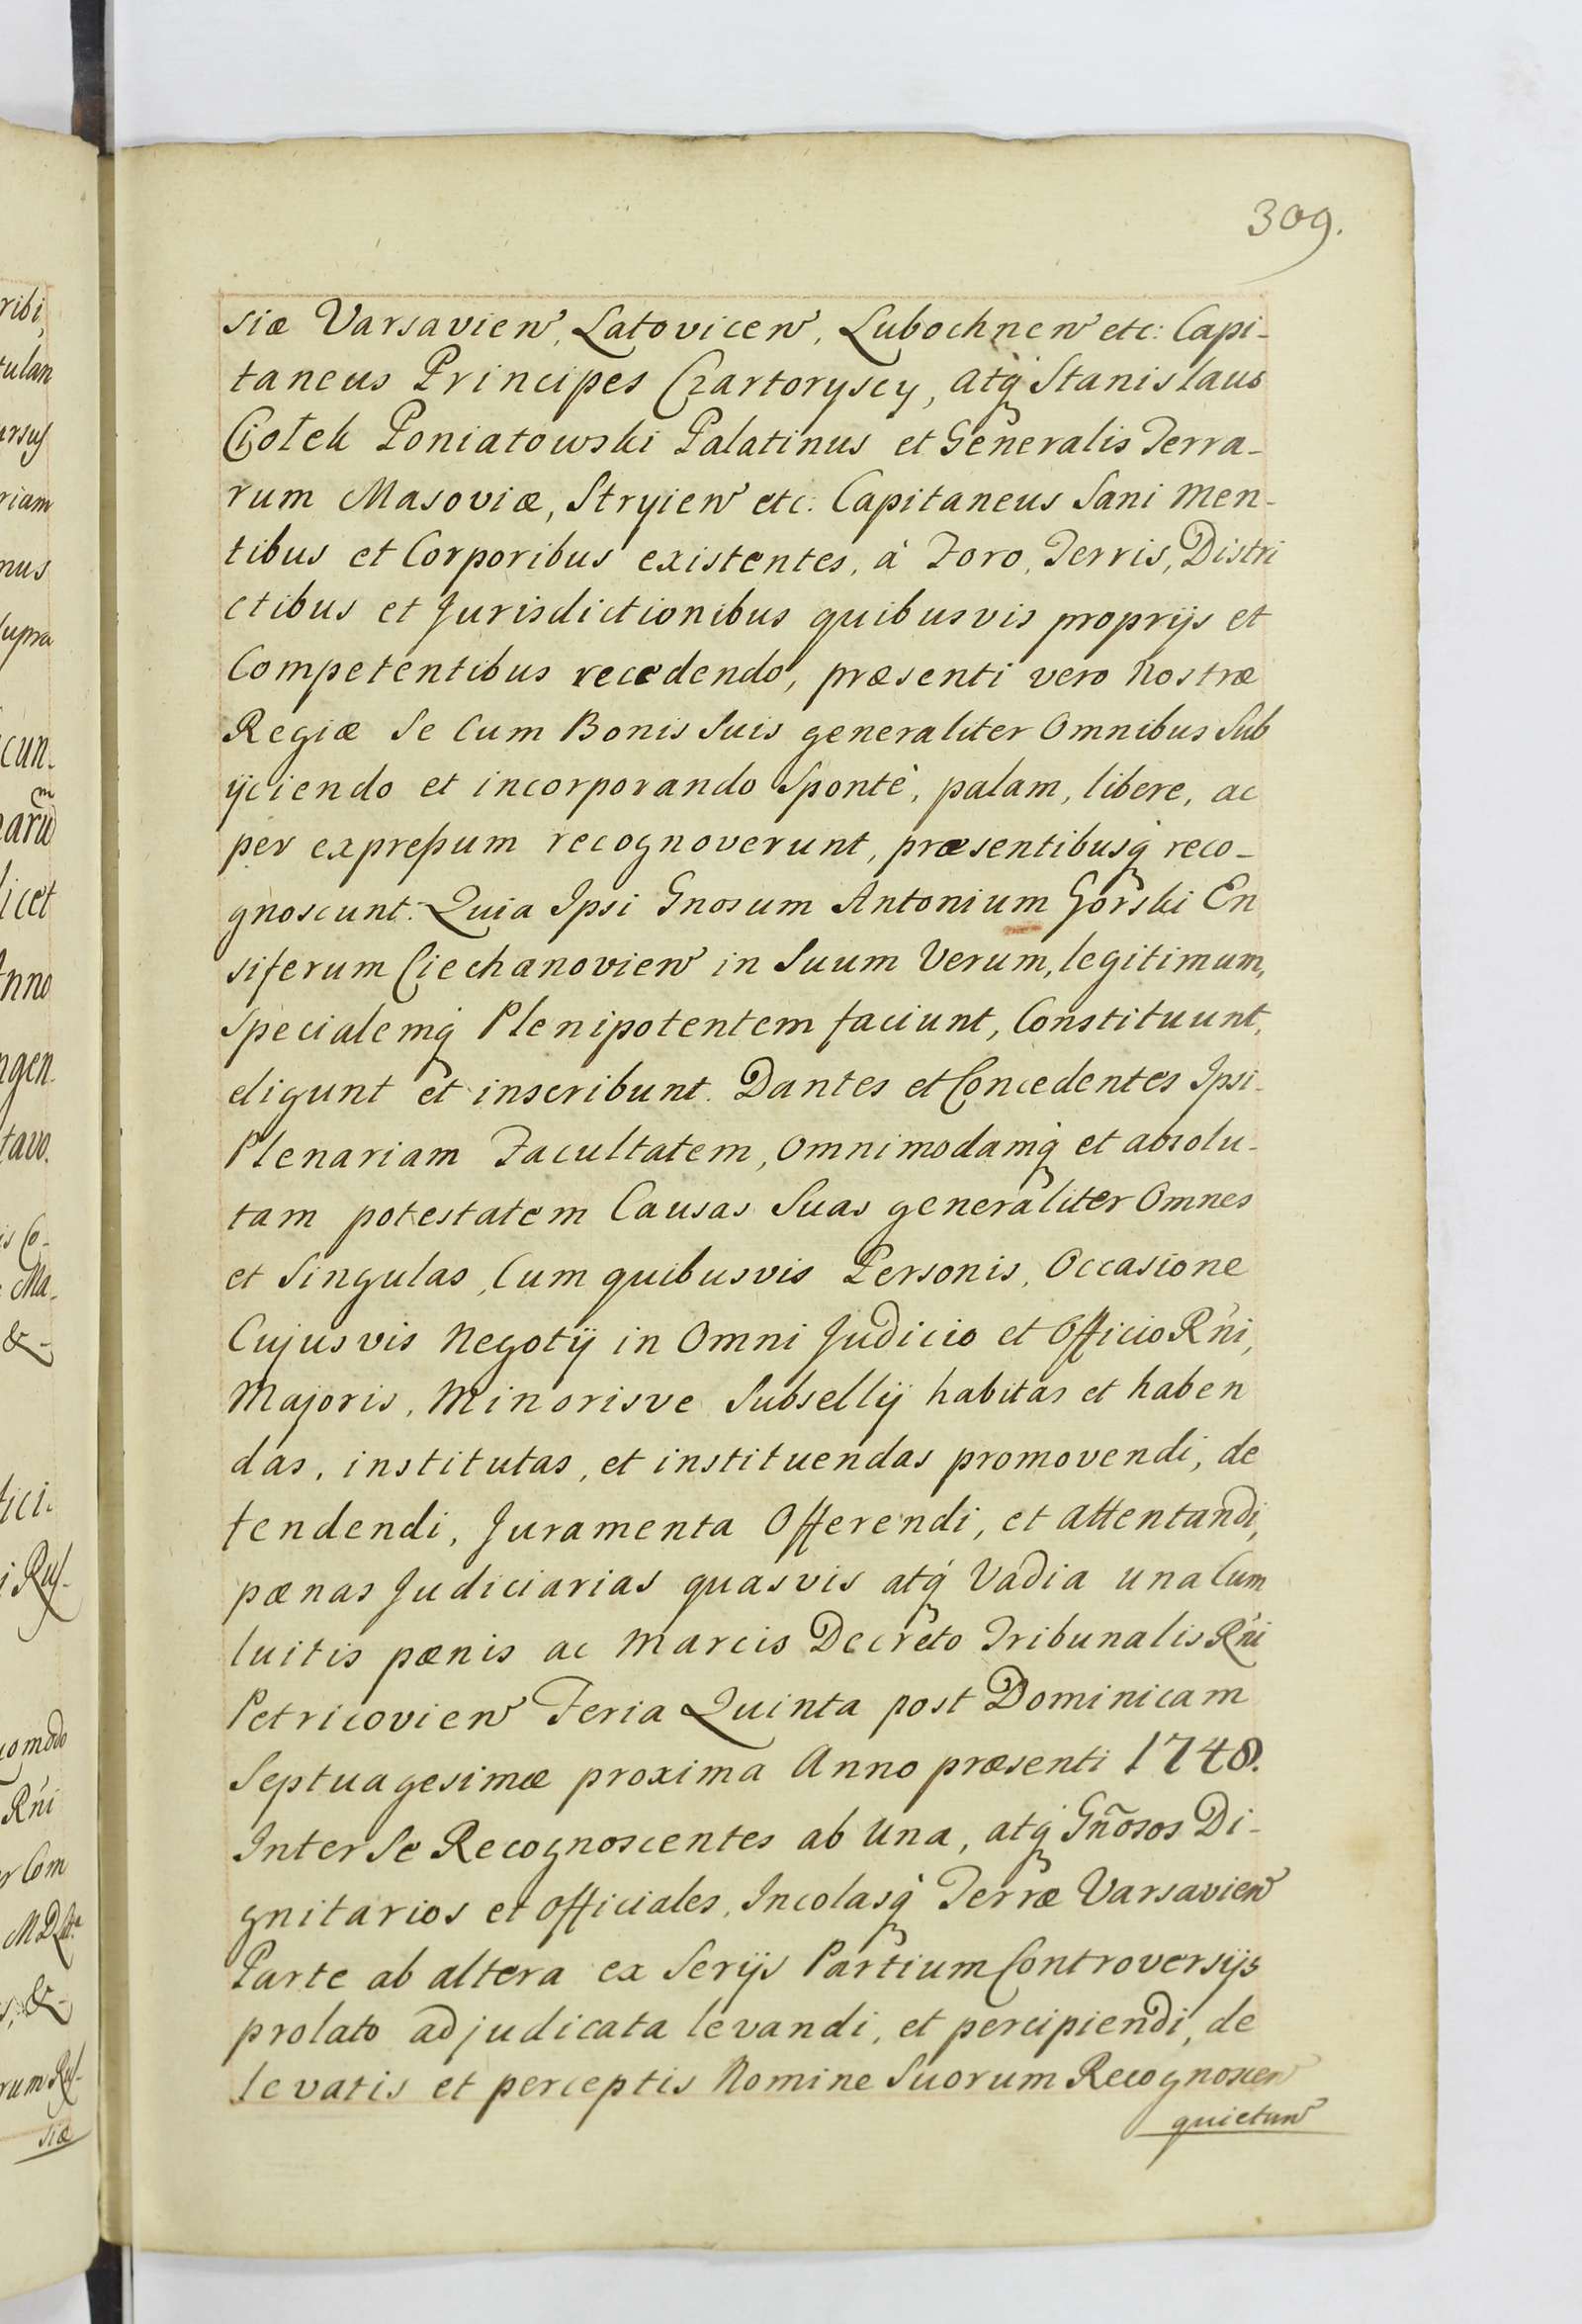 309.
siæ Varsavien, Latovicen, Lubochnen etc: Capi-
taneus Principes Czartoryscy, atq; Stanislaus
Ciołek Poniatowski Palatinus et Generalis Terra-
rum Masoviæ, Stryien etc: Capitaneus Sani Men-
tibus et Corporibus existentes, à Foro, Terris, Distri
ctibus et Jurisdictionibus quibusvis proprijs et
Competentibus recedendo, præsenti vero Nostræ
Regiæ Se Cum Bonis Suis generaliter Omnibus Sub
ijciendo et incorporando Spontè, palam, libere, ac
per expreßum recognoverunt, præsentibusq; reco-
gnoscunt: Quia Ipsi Gnosum Antonium Gorski En
siferum Ciechanovien in Suum Verum, legitimum,
Specialemq; Plenipotentem faciunt, Constituunt,
eligunt et inscribunt. Dantes et Concedentes Ipsi
Plenariam Facultatem, Omnimodamq; et absolu-
tam potestatem Causas Suas generaliter Omnes
et Singulas, Cum quibusvis Personis, Occasione
Cujusvis Negotij in Omni Judicio et Officio R'ni,
Majoris, Minorisve Subsellij habitas et haben
das, institutas, et instituendas promovendi, de
fendendi, Juramenta Offerendi, et attentandi,
pænas Judiciarias quasvis atq; Vadia una Cum
luitis pænis ac Marcis Decreto Tribunalis R'ni
Petricovien Feria Quinta post Dominicam
Septuagesimæ proxima Anno præsenti 1748.
Inter Se Recognoscentes ab Una, atq; Gñosos Di-
gnitarios et Officiales, Incolasq; Terræ Varsavien
Parte ab altera ex Serijs Partium Controversijs
prolato adjudicata levandi, et percipiendi, de
levatis et perceptis Nomine Suorum Recognoscen
quietan
ribi,
tulan
ursus
riam
nus
supra
cun-
m
icet
Anno
ngen
tavo.
is Co-
Ma-
&
tici-
i Rus-
uomodo
R'ni
r Com
&
rum Rus-
siæ